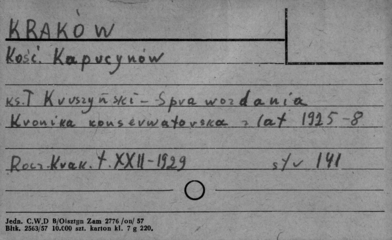 KRAKÓW
Kość. Kapucynów
ks. T Kruszyński - Sprawozdania
Kronika konserwatorska z lat 1925-8
Rocz. Krak. t. XXII-1929 str 141
Jedn. C.W.D 8/Olsztyn Zam 2776/on/57
Bltk. 2563/57 10.000 szt. karton kl. 7 g 220.